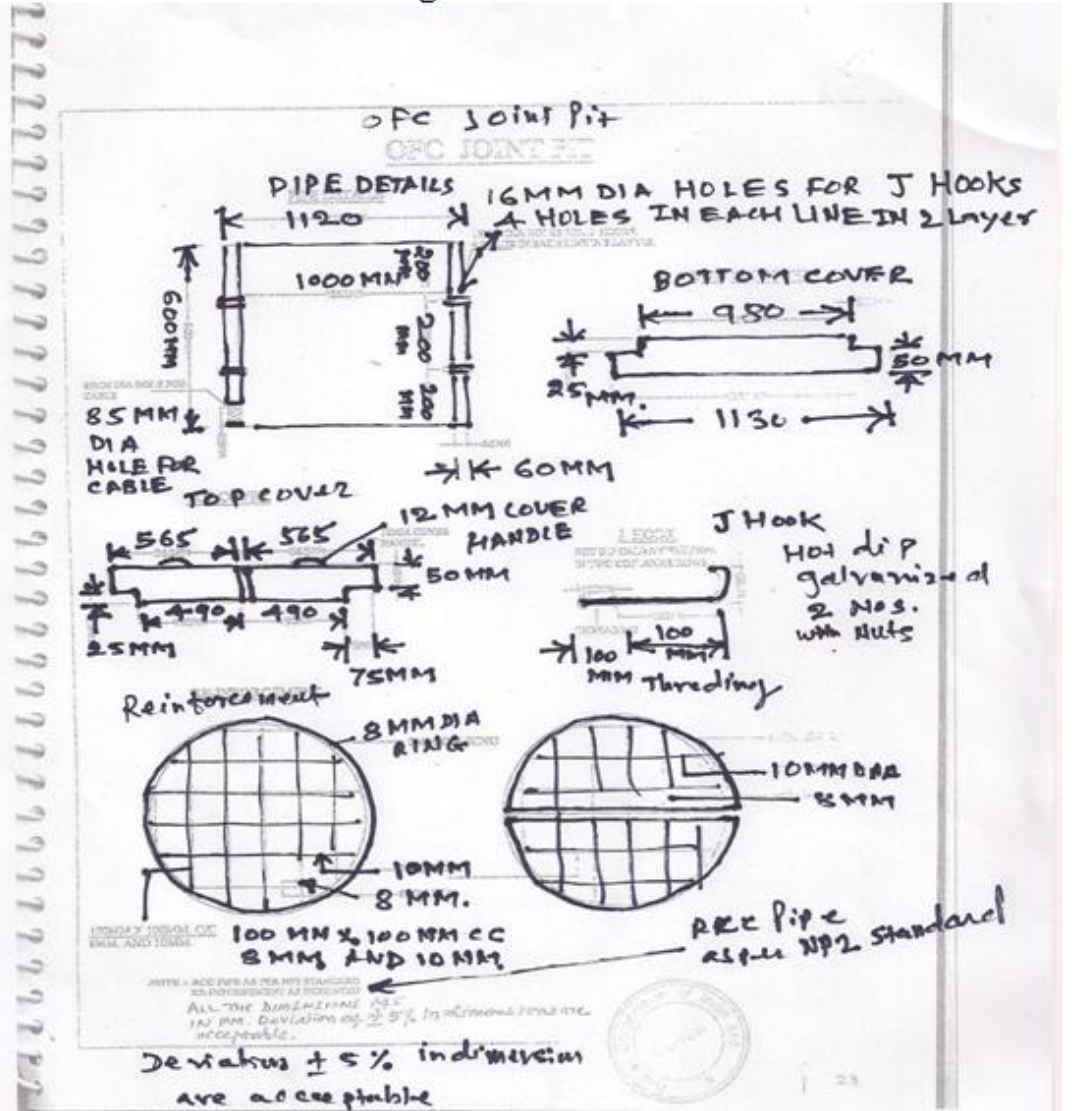 OFC Joint Pit
OFC JOINT PIT
PIPE DETAILS
1120
16MM DIA HOLES FOR J HOOKS
4 HOLES IN EACH LINE IN 2 Layer
1000 MM
200 MM
200 MM
200 MM
600MM
85 MM
DIA
HOLE FOR
CABLE
60MM
BOTTOM COVER
980
25MM.
50 MM
1130
TOP COVER
565
565
12 MM COVER
HANDLE
50MM
490
490
25MM
75MM
J Hook
HOt diP
galvanized
2 Nos.
with Nuts
100
MM
100
MM Threding
Reinforcement
8 MM DIA
RING
10MM
8 MM.
100 MM X 100 MM CC
8MM AND 10MM
10MM DIA
8MM
RCC Pipe
as per NP2 Standard
ALL THE DIMENSIONS ARE
IN MM. Deviation of ± 5% in dimensions are
acceptable.
Deviation ± 5% in dimersion
are acceptable
23